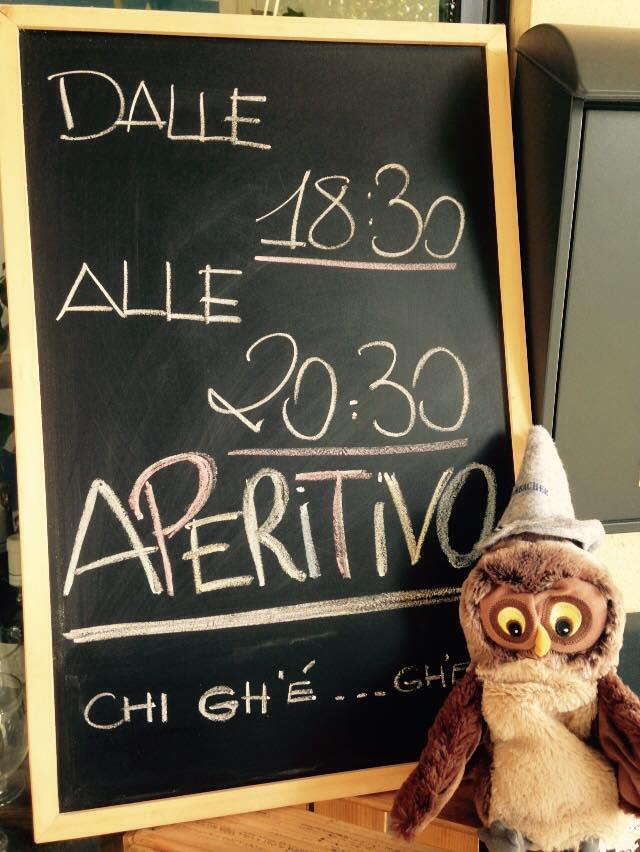 DALLE
18:30
ALLE
20:30
APERITIVO
CHI GH'É ... GH'É